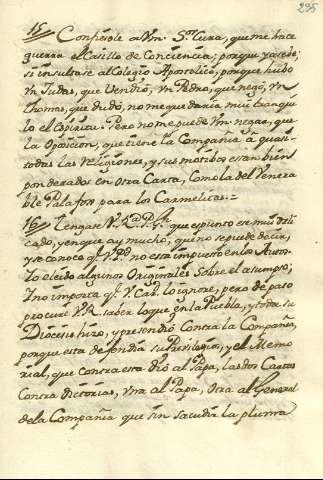 235
15 Confiesole a Vm. Sor. Cura, que me hace
guerra el Casillo de Conciencia; porque ya se vé,
si insultase al Colegio Apostolico, porque hubo
vn Judas, que Vendió, vn Pedro, que negó, vn
Thomas, que dudó, no me quedaria mui tranqui
lo el espiritu. Pero no me puede Vm. negar, que
la Oposicion, que tiene la Compañia â quasi
todas las Religiones, y sus motibos estan bien
ponderados en otra Carta, como la del Venera
ble Palafox para los Carmelitas.=
16 Tengase V. Rd. P. Mr. que es punto ese mui deli
cado, y en que ay mucho, que no se puede decir,
y se conoce q.e V. Pd. no està impuesto en los Autos.
Yo è leido algunos Originales sobre el asumpto;
Y no importa q.e V. Card. lo ignore, pero de paso
procure V. R. saber lo que en la Puebla, y toda su
Diocesis hizo, y pretendió Contra la Compañia,
porque esta defendia sus Privilegios, y el Memo
rial, que contra esta dió al Papa, las dos Cartas
Contradictorias, vna al Papa, otra al General
de la Compañia que sin sacudir la pluma